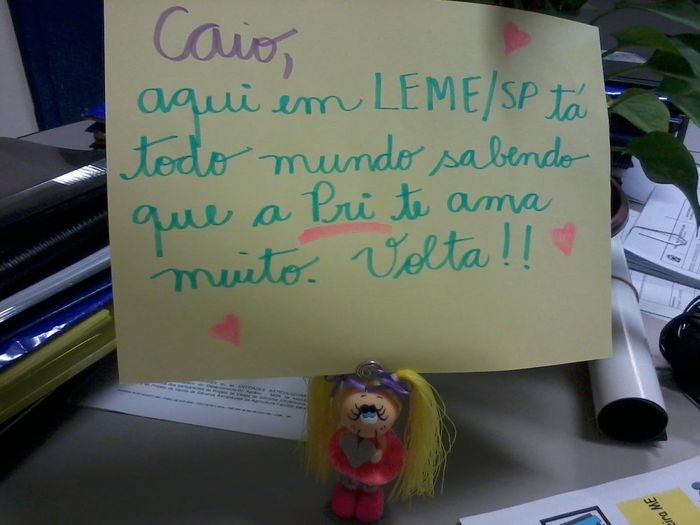 Caio,
aqui em LEME/SP tá
todo mundo sabendo
que a Pri te ama
muito. Volta!!